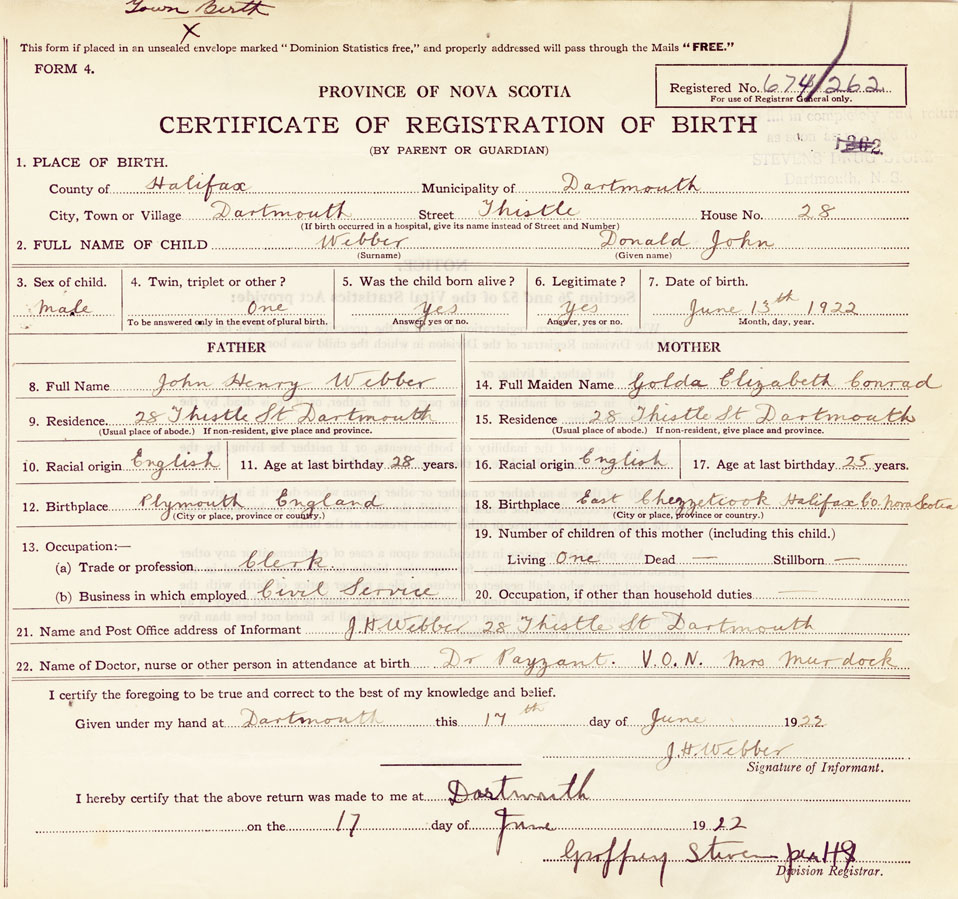 Town Birth
X
This form if placed in an unsealed envelope marked "Dominion Statistics free," and properly addressed will pass through the Mails "FREE."
FORM 4.
Registered No. 674/262
For use of Registrar General only.
PROVINCE OF NOVA SCOTIA
CERTIFICATE OF REGISTRATION OF BIRTH
(BY PARENT OR GUARDIAN)
1. PLACE OF BIRTH.
STEVENS DRUG STORE
Dartmouth, N. S.
County of Halifax Municipality of Dartmouth
City, Town or Village Dartmouth Street Thistle House No. 28
(If birth occurred in a hospital, give its name instead of Street and Number)
2. FULL NAME OF CHILD Webber Donald John
(Surname) (Given name)
3. Sex of child. 4. Twin, triplet or other? 5. Was the child born alive? 6. Legitimate? 7. Date of birth.
Male One Yes Yes June 13th 1922
To be answered only in the event of plural birth. Answer, yes or no. Answer, yes or no. Month, day, year.
FATHER MOTHER
8. Full Name John Henry Webber 14. Full Maiden Name Golda Elizabeth Conrad
9. Residence. 28 Thistle St Dartmouth 15. Residence 28 Thistle St Dartmouth
(Usual place of abode.) If non-resident, give place and province. (Usual place of abode.) If non-resident, give place and province.
10. Racial origin English 11. Age at last birthday 28 years. 16. Racial origin English 17. Age at last birthday 25 years.
12. Birthplace Plymouth England 18. Birthplace East Chezzetcook Halifax Co. Nova Scotia
(City or place, province or country.) (City or place, province or country.)
13. Occupation:— 19. Number of children of this mother (including this child.)
(a) Trade or profession Clerk. Living One Dead — Stillborn —
(b) Business in which employed Civil Service 20. Occupation, if other than household duties —
21. Name and Post Office address of Informant J.H. Webber 28 Thistle St Dartmouth
22. Name of Doctor, nurse or other person in attendance at birth Dr Payzant. V.O.N. Mrs Murdock
I certify the foregoing to be true and correct to the best of my knowledge and belief.
Given under my hand at Dartmouth this 17th day of June 1922
J.H. Webber
Signature of Informant.
I hereby certify that the above return was made to me at Dartmouth
on the 17 day of June 1922
Geoffrey Stevens per HS
Division Registrar.